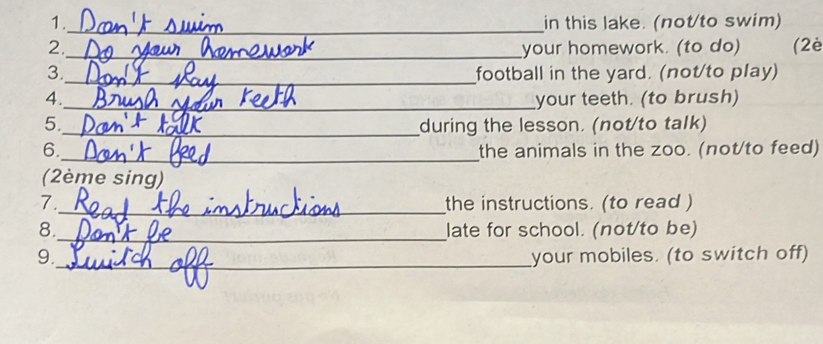 1. Don't swim in this lake. (not/to swim)
2. Do your homework your homework. (to do) (2è
3. Don't play football in the yard. (not/to play)
4. Brush your teeth your teeth. (to brush)
5. Don't talk during the lesson. (not/to talk)
6. Don't feed the animals in the zoo. (not/to feed)
(2ème sing)
7. Read the instructions the instructions. (to read )
8. Don't be late for school. (not/to be)
9. Switch off your mobiles. (to switch off)